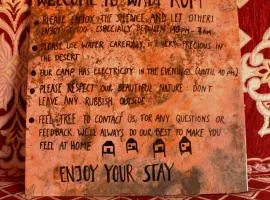 WELCOME TO WADI RUM
PLEASE ENJOY THE SILENCE AND LET OTHERS
ENJOY IT TOO, ESPECIALLY BETWEEN PM - AM
PLEASE USE WATER CAREFULLY, IT'S VERY PRECIOUS IN
THE DESERT
OUR CAMP HAS ELECTRICITY IN THE EVENINGS (UNTIL
PLEASE RESPECT OUR BEAUTIFUL NATURE. DON'T
LEAVE ANY RUBBISH OUTSIDE
FEEL FREE TO CONTACT US, FOR ANY QUESTIONS OR
FEEDBACK. WE'LL ALWAYS DO OUR BEST TO MAKE YOU
FEEL AT HOME
ENJOY YOUR STAY